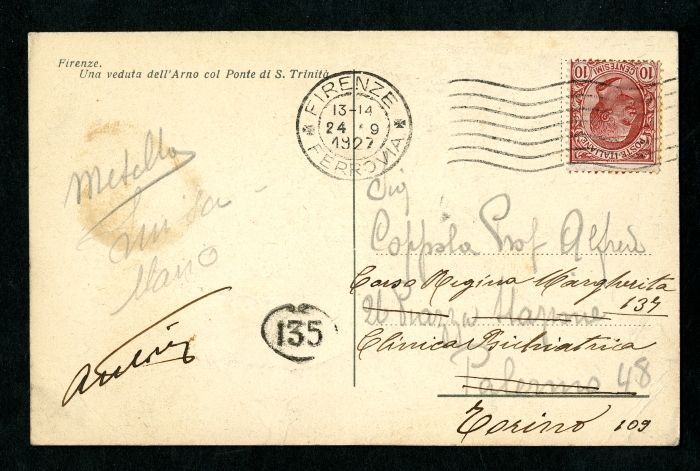 Firenze.
Una veduta dell'Arno col Ponte di S. Trinità
FIRENZE
13-14
24 · 9
1927
FERROVIA
10 CENTESIMI 10
POSTE ITALIANE
Metella
Luisa
135
Sig
Coppola Prof Alfredo
Corso Regina Margherita
137
26 Piazza Marione
Clinica Psichiatrica
Palermo 48
Torino 109